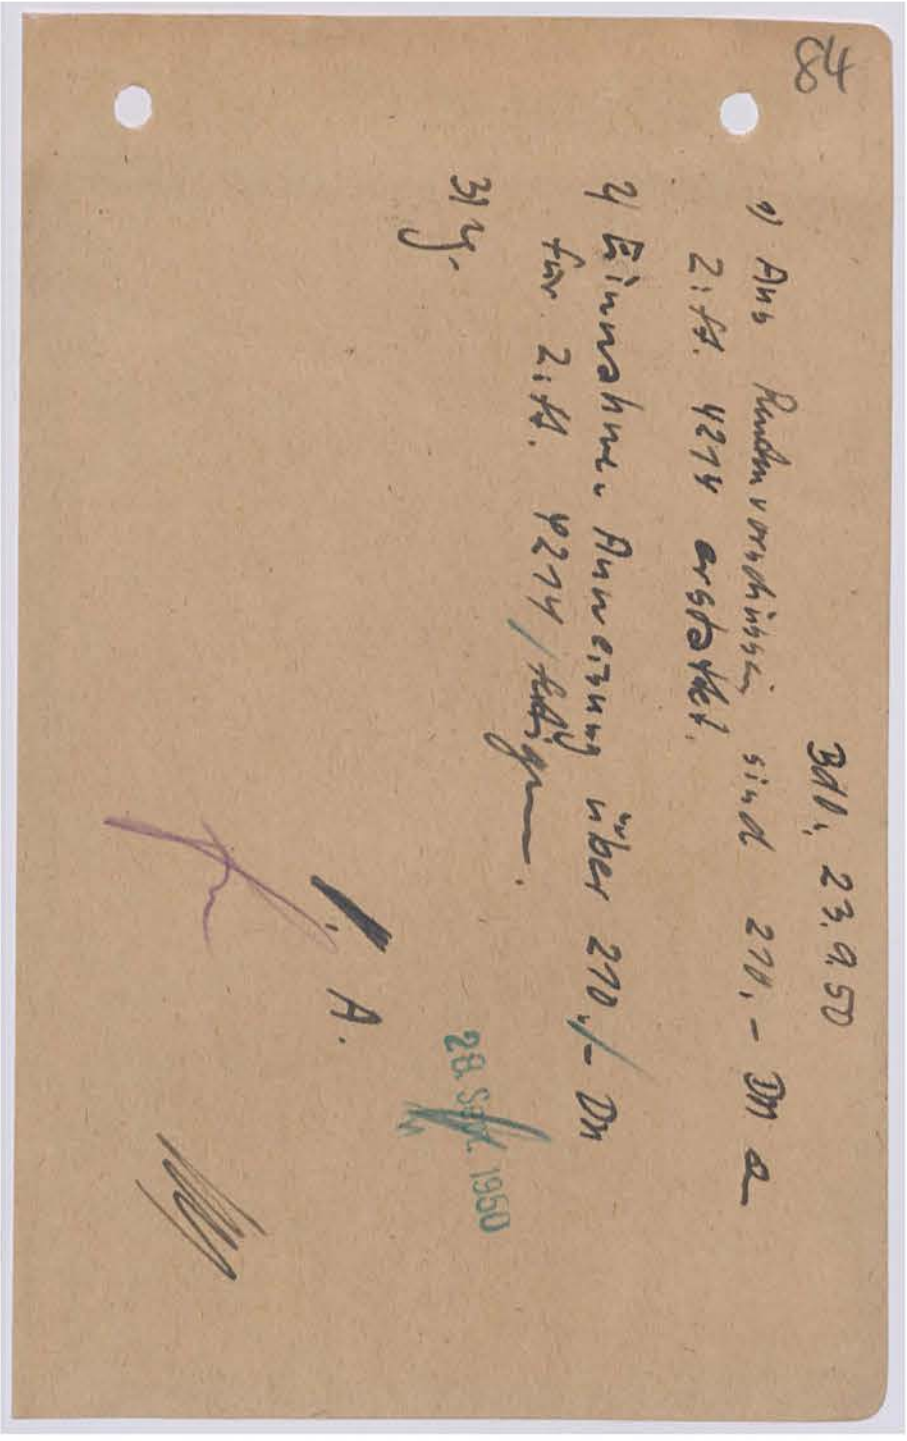 84
Bdl, 23.9.50
1) Aus Kundenvorschüssen sind 210,- DM a
Ziff. 4214 erstattet.
2) Einnahme-Anweisung über 210,- DM
für Ziff. 4214
3)
28. Sept. 1950
I. A.